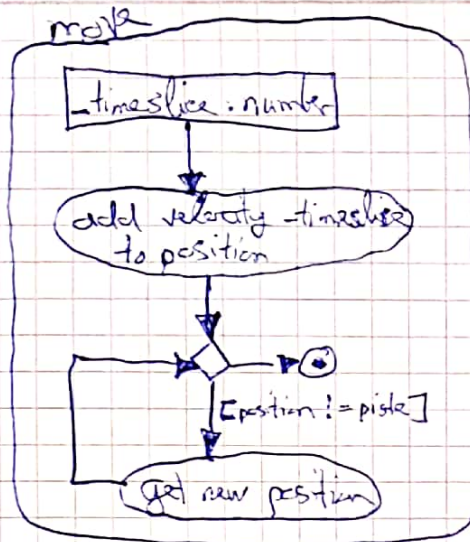 move
_timeslice : number
add velocity _timeslice
to position
[position != piste]
get new position